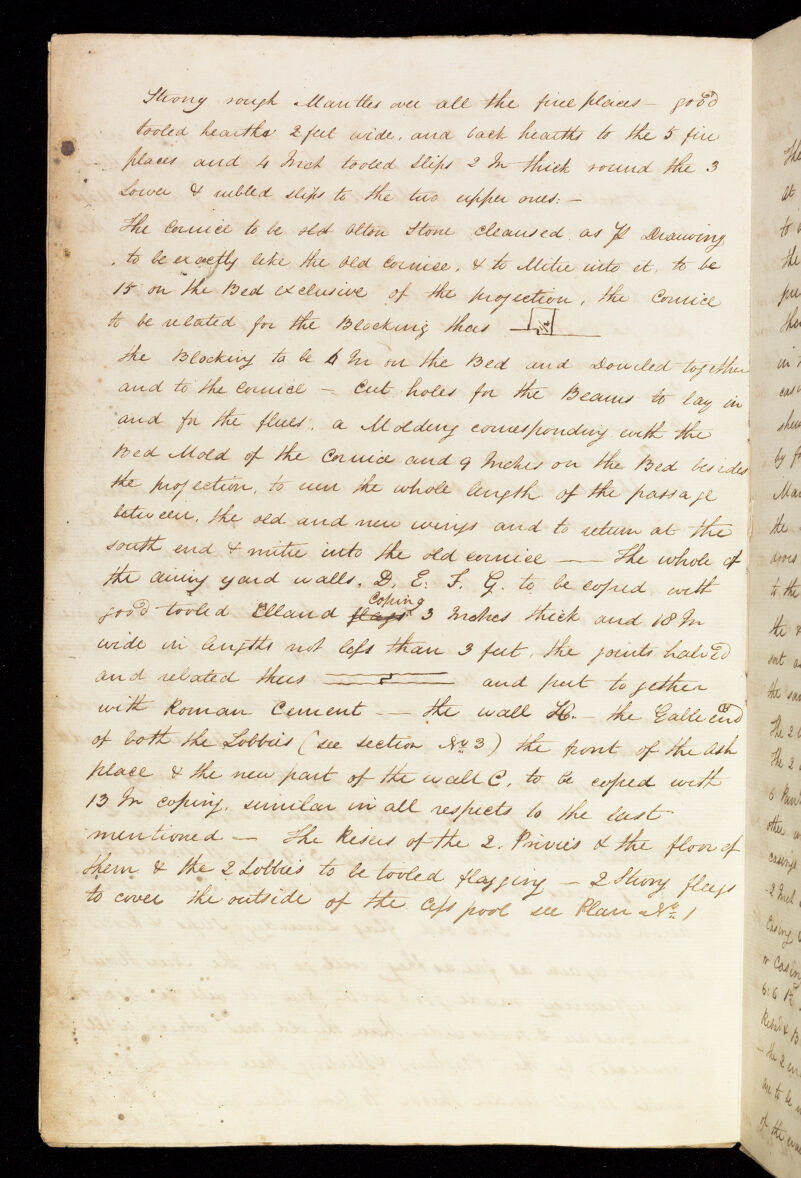 Strong rough Mantles over all the fire places — good
tooled hearths 2 feet wide, and back hearths to the 5 fire
places and 4 Inch tooled Slips 2 In thick round the 3
Lower & rubbed slips to the two upper ones: —
The Cornice to be old alton Stone Cleansed as Pr Drawing
to be exactly like the old Cornice, & to Mitre into it, to be
15 on the Bed exclusive of the projection, the Cornice
to be rebated for the Blocking thus
the Blocking to be 6 In on the Bed and Doweled together
and to the Cornice — Cut holes for the Beams to lay in
and for the flues, a Molding corresponding with the
Bed Mold of the Cornice and 9 Inches on the Bed besides
the projection, to run the whole length of the passage
between, the old and new wings and to return at the
south end & mitre into the old cornice — The whole of
the airing yard walls, D. E. F. G. to be coped with
good tooled Elland flags coping 3 Inches thick and 18 In
wide in lengths not less than 3 feet, the joints halved
and rebated thus and put together
with Roman Cement — the wall H. — the Gable end
of both the Lobbies (see section No 3) the front of the Ash
place & the new part of the wall C, to be coped with
13 In coping, similar in all respects to the last
mentioned — The Risers of the 2. Privies & the floor of
them & the 2 Lobbies to be tooled flagging — 2 Strong flags
to cover the outside of the Cess pool see Plan No 1